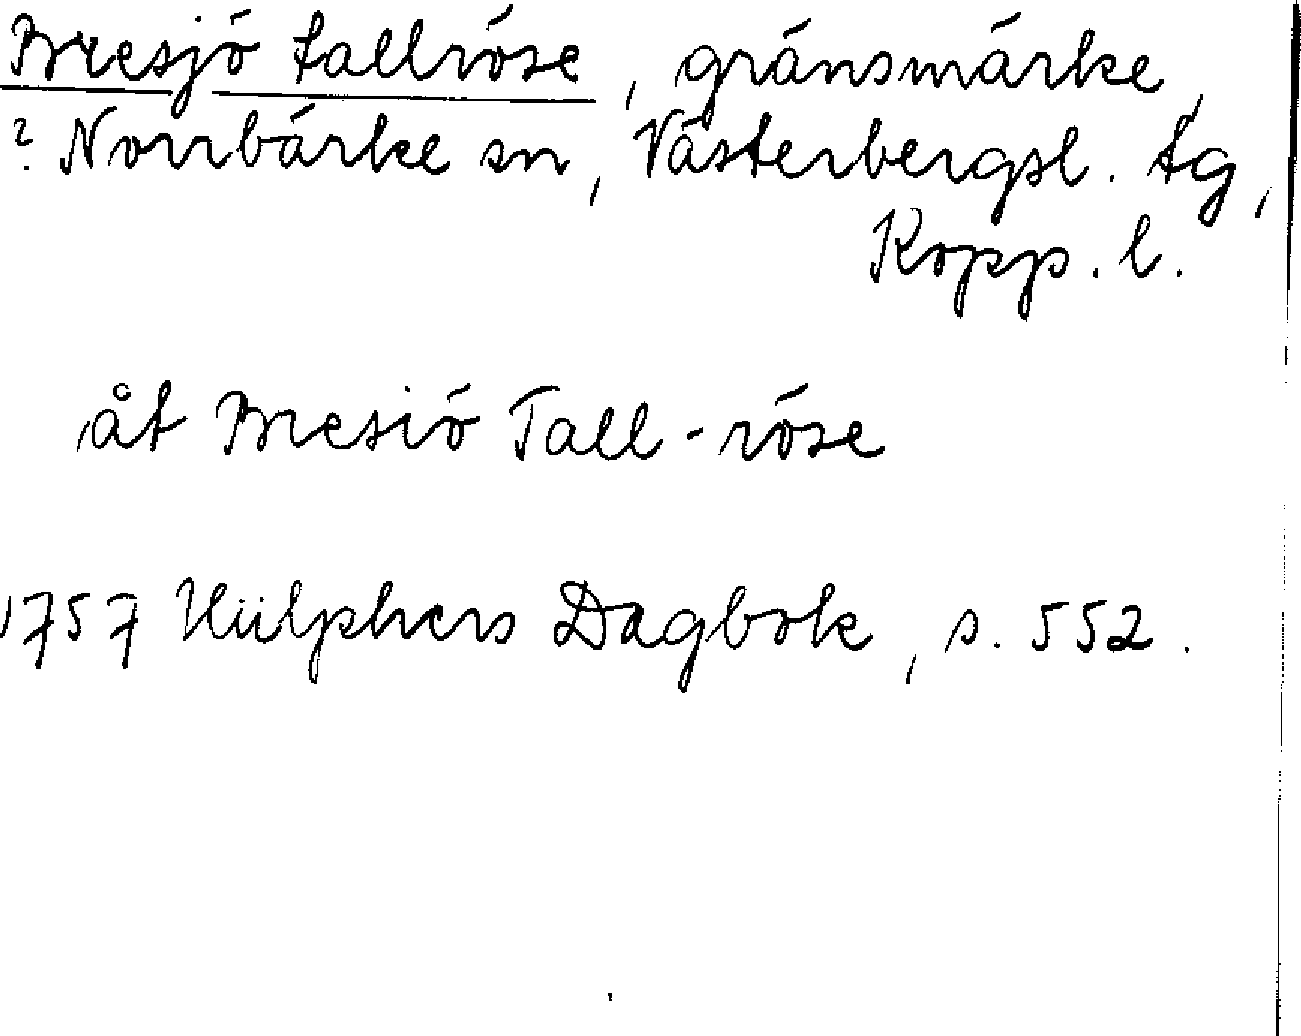 Bresjö tallröse, gränsmärke,
? Norrbärke sn, Västerbergsl. tg,
Kopp. l.
åt Bresiö Tall-röse
1757 Hülphers Dagbok, s. 552.